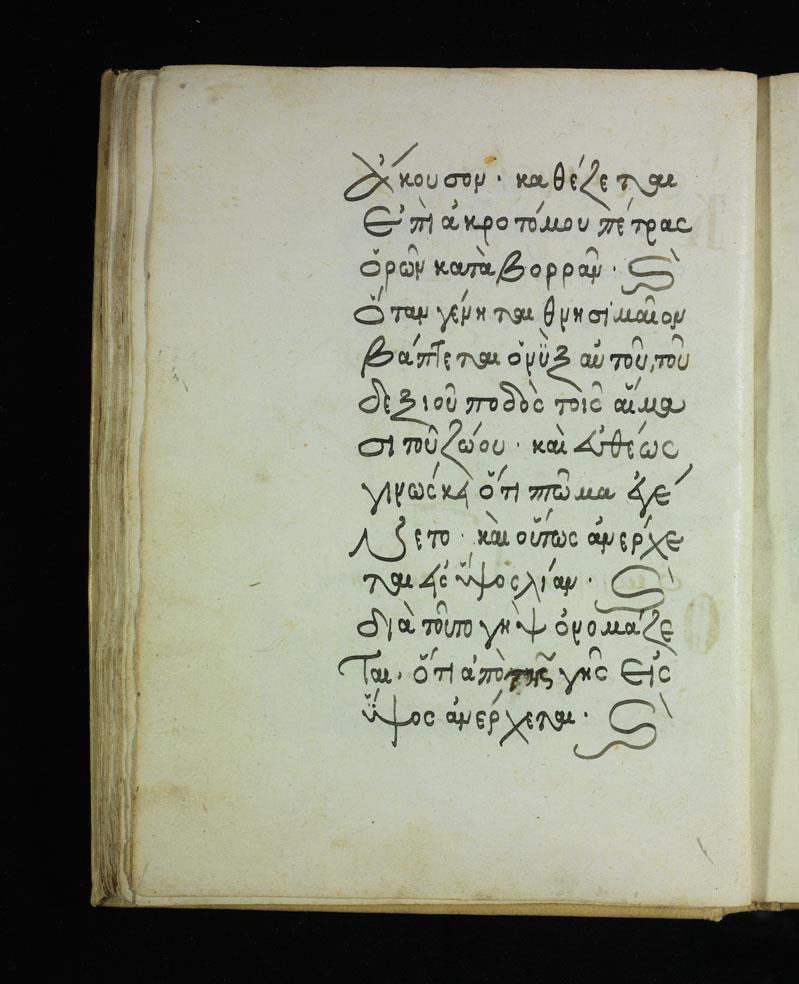 Ἄκουσον· καθέζεται
ἐπὶ ἀκροτόμου πέτρας
ὁρῶν κατὰ βορρᾶν·
Ὅταν γένηται θνησιμαῖον
βάπτεται ὁ νῢξ αὐτοῦ, τοῦ
δεξιοῦ ποδὸς τοῖς αἵμα
σι τοῦ ζώου· καὶ εὐθέως
γινώσκει ὅτι πτῶμα ἐγέ
νετο· καὶ οὕτως ἀνέρχε
ται εἰς ὕψος λίαν·
διὰ τοῦτο γὺψ ὀνομάζε
ται· ὅτι ἀπὸ τῆς γῆς εἰς
ὕψος ἀνέρχεται·